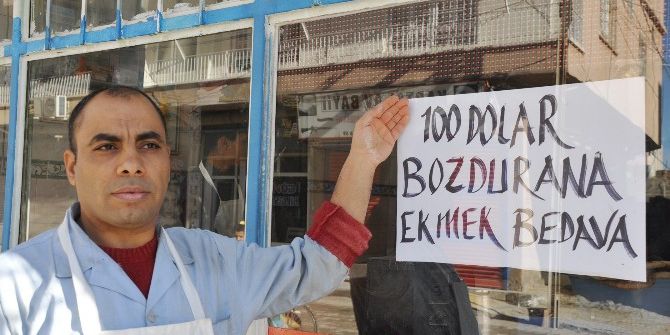 100 DOLAR
BOZDURANA
EKMEK BEDAVA